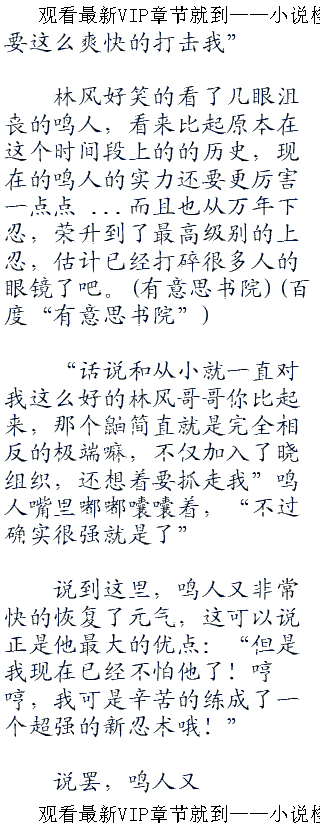 观看最新VIP章节就到——小说楼
要这么爽快的打击我”
林风好笑的看了几眼沮
丧的鸣人，看来比起原本在
这个时间段上的的历史，现
在的鸣人的实力还要更厉害
一点点 ...而且也从万年下
忍，荣升到了最高级别的上
忍，估计已经打碎很多人的
眼镜了吧。(有意思书院)(百
度“有意思书院”)
“话说和从小就一直对
我这么好的林风哥哥你比起
来，那个鼬简直就是完全相
反的极端嘛，不仅加入了晓
组织，还想着要抓走我”鸣
人嘴里嘟嘟囔囔着，“不过
确实很强就是了”
说到这里，鸣人又非常
快的恢复了元气，这可以说
正是他最大的优点：“但是
我现在已经不怕他了！哼
哼，我可是辛苦的练成了一
个超强的新忍术哦！”
说罢，鸣人又
观看最新VIP章节就到——小说楼